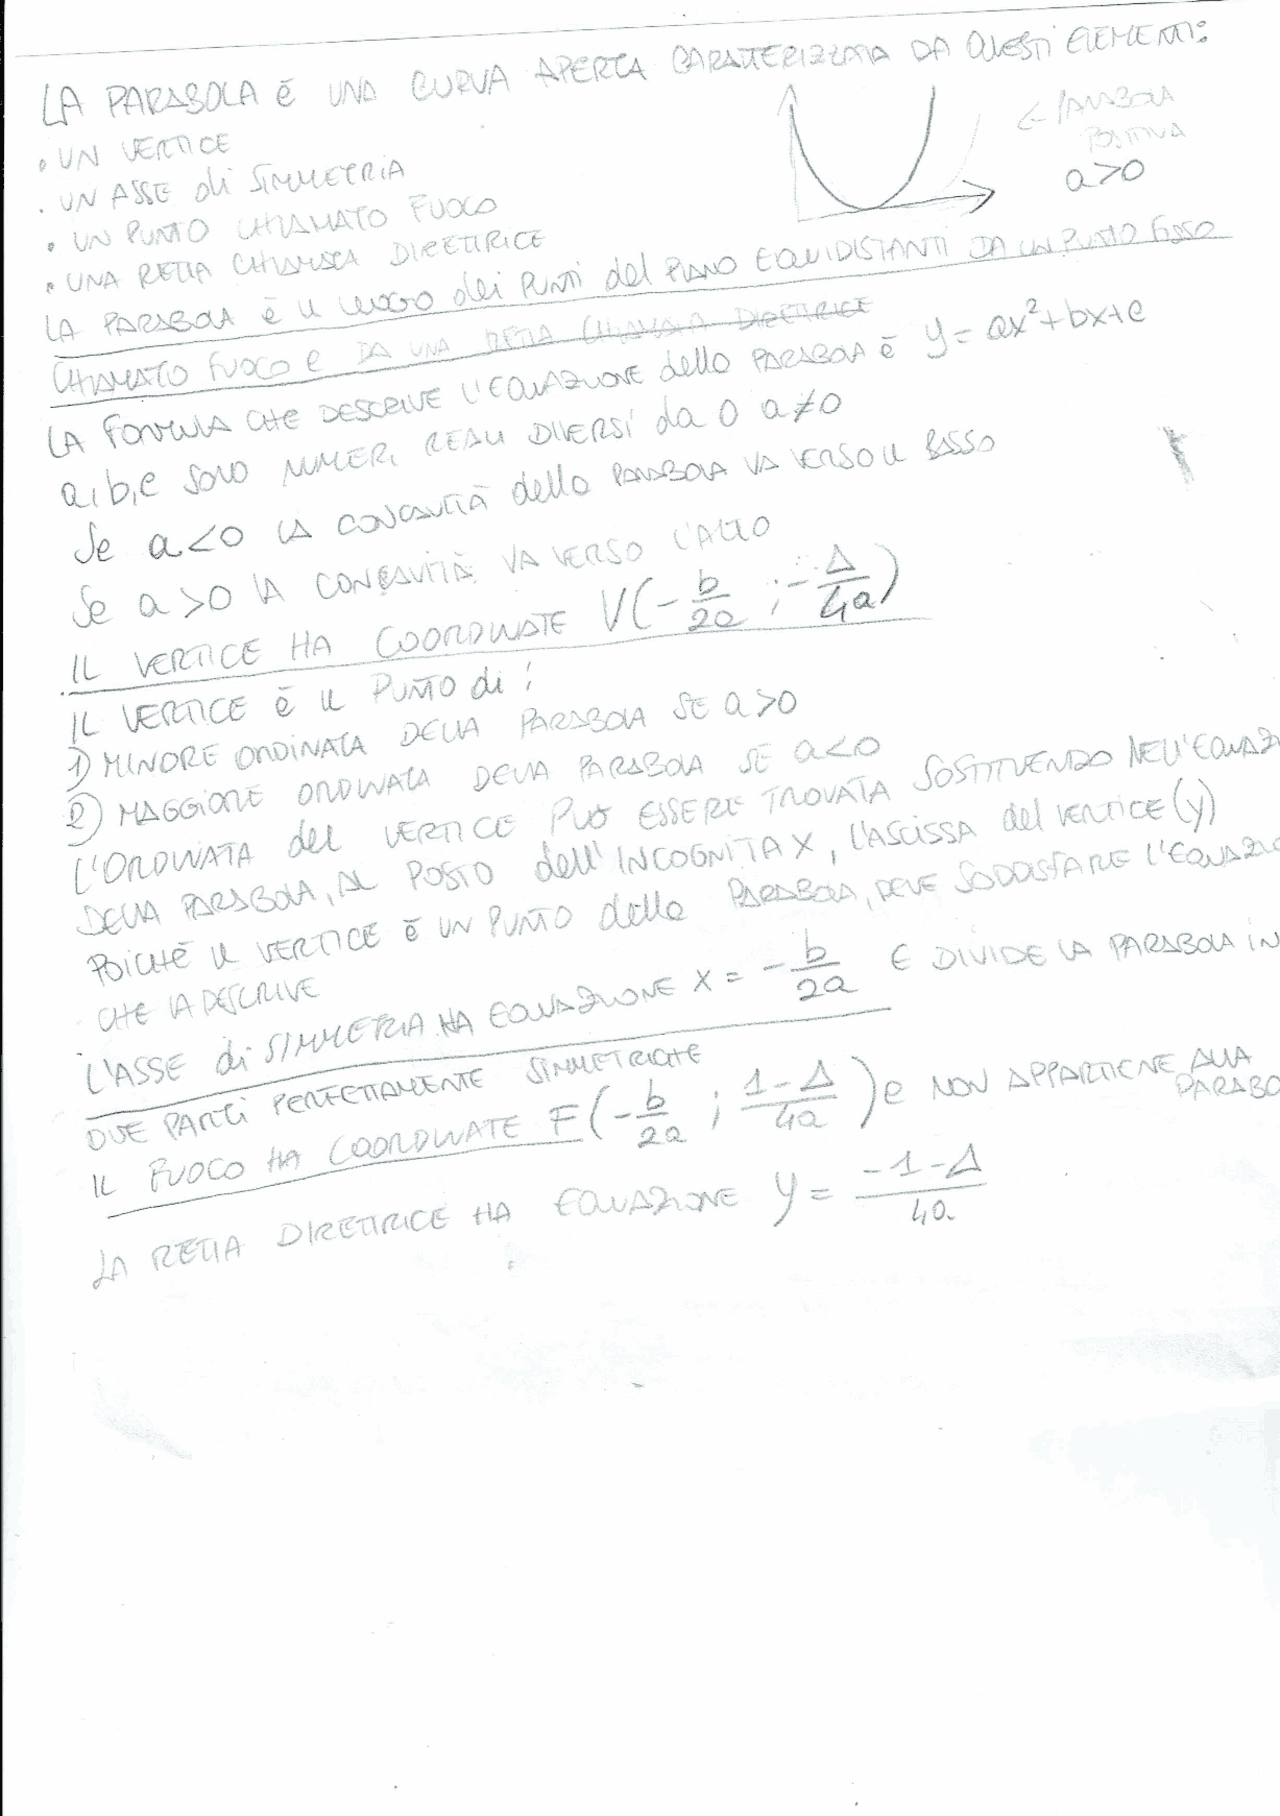 LA PARABOLA È UNA CURVA APERTA CARATTERIZZATA DA QUESTI ELEMENTI:
← PARABOLA
POSITIVA
a>0
• UN VERTICE
• UN ASSE di SIMMETRIA
• UN PUNTO CHIAMATO FUOCO
• UNA RETTA CHIAMATA DIRETTRICE
LA PARABOLA È IL LUOGO dei PUNTI del PIANO EQUIDISTANTI DA UN PUNTO FISSO
CHIAMATO FUOCO E DA UNA RETTA CHIAMATA DIRETTRICE
LA FORMULA CHE DESCRIVE L'EQUAZIONE della PARABOLA È y = ax²+bx+c
a, b, c SONO NUMERI REALI DIVERSI da 0 a≠0
Se a<0 LA CONCAVITÀ della PARABOLA VA VERSO IL BASSO
Se a>0 LA CONCAVITÀ VA VERSO L'ALTO
IL VERTICE HA COORDINATE V(-b/2a ; -Δ/4a)
IL VERTICE È IL PUNTO di:
1) MINORE ORDINATA DELLA PARABOLA SE a>0
2) MAGGIORE ORDINATA DELLA PARABOLA SE a<0
L'ORDINATA del VERTICE PUÒ ESSERE TROVATA SOSTITUENDO NELL'EQUAZI
DELLA PARABOLA, AL POSTO dell'INCOGNITA X, L'ASCISSA del VERTICE (y)
POICHÉ IL VERTICE È UN PUNTO della PARABOLA, DEVE SODDISFARE L'EQUAZIO
CHE LA DESCRIVE
L'ASSE di SIMMETRIA HA EQUAZIONE X = -b/2a E DIVIDE LA PARABOLA IN
DUE PARTI PERFETTAMENTE SIMMETRICHE
IL FUOCO HA COORDINATE F(-b/2a ; 1-Δ/4a) e NON APPARTIENE ALLA
PARABO
LA RETTA DIRETTRICE HA EQUAZIONE y = -1-Δ/4a